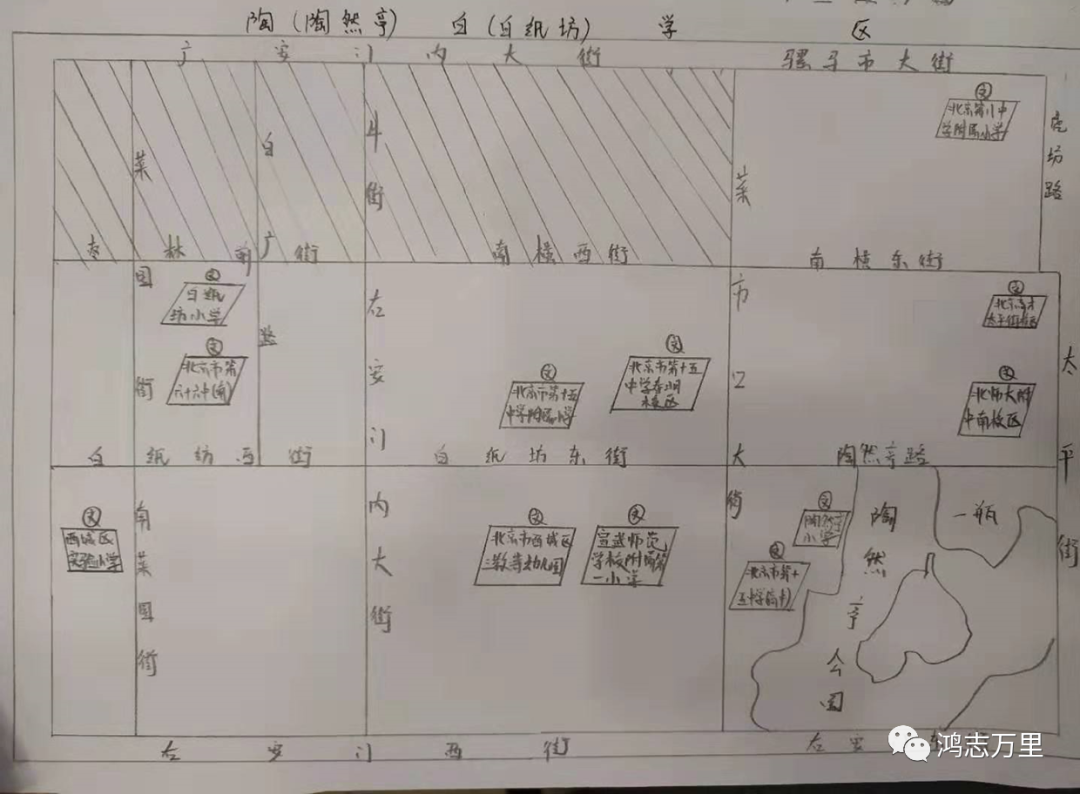 陶(陶然亭) 白(白纸坊) 学 区
广安门内大街 骡马市大街
北京第八中
学附属小学
虎坊路
菜园街
白广路
牛街
菜市口大街
枣林前街
南横西街
南横东街
白纸
纺小学
北京市第
六十六中(南)
右安门内大街
北京市第十五
中学附属小学
北京市第十五
中学
校区
北京
太平街校区
北师大附
中南校区
太平街
白纸纺西街
白纸坊东街
陶然亭路
西城区
实验小学
南菜园街
北京市西城区
三教寺幼儿园
宣武师范
学校附属第
一小学
陶然亭
小学
北京市第十
五中学(初中)
陶然亭公园
一瓶
右安门西街
右安
鸿志万里